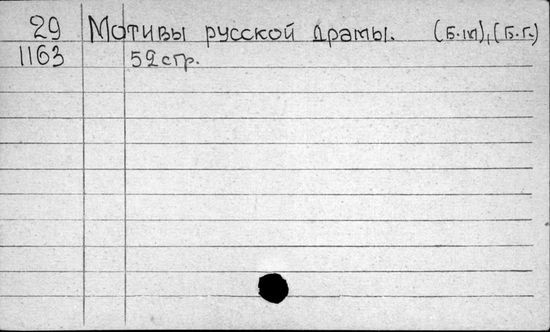 29 Мотивы русской драмы. (Б.м), (Б.г.)
1163 52 стр.